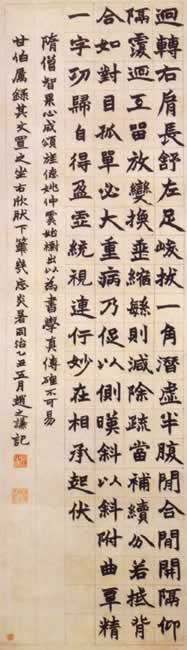 迴轉右肩長舒左足峻拔一角潛虛半腹間合間開隔仰
隔覆迴互留放變換垂縮緐則減除疏當補續分若抵背
合如對目孤單必大重病乃促以側暎斜以斜附曲覃精
一字功歸自得盈虛統視連行妙在相承起伏
隋僧智果心成頌姚仲虞始出以為書學真傳確不可易
甘伯屬錄其文置之坐右欣肰下筆幾忘炎暑同治乙丑五月趙之謙記